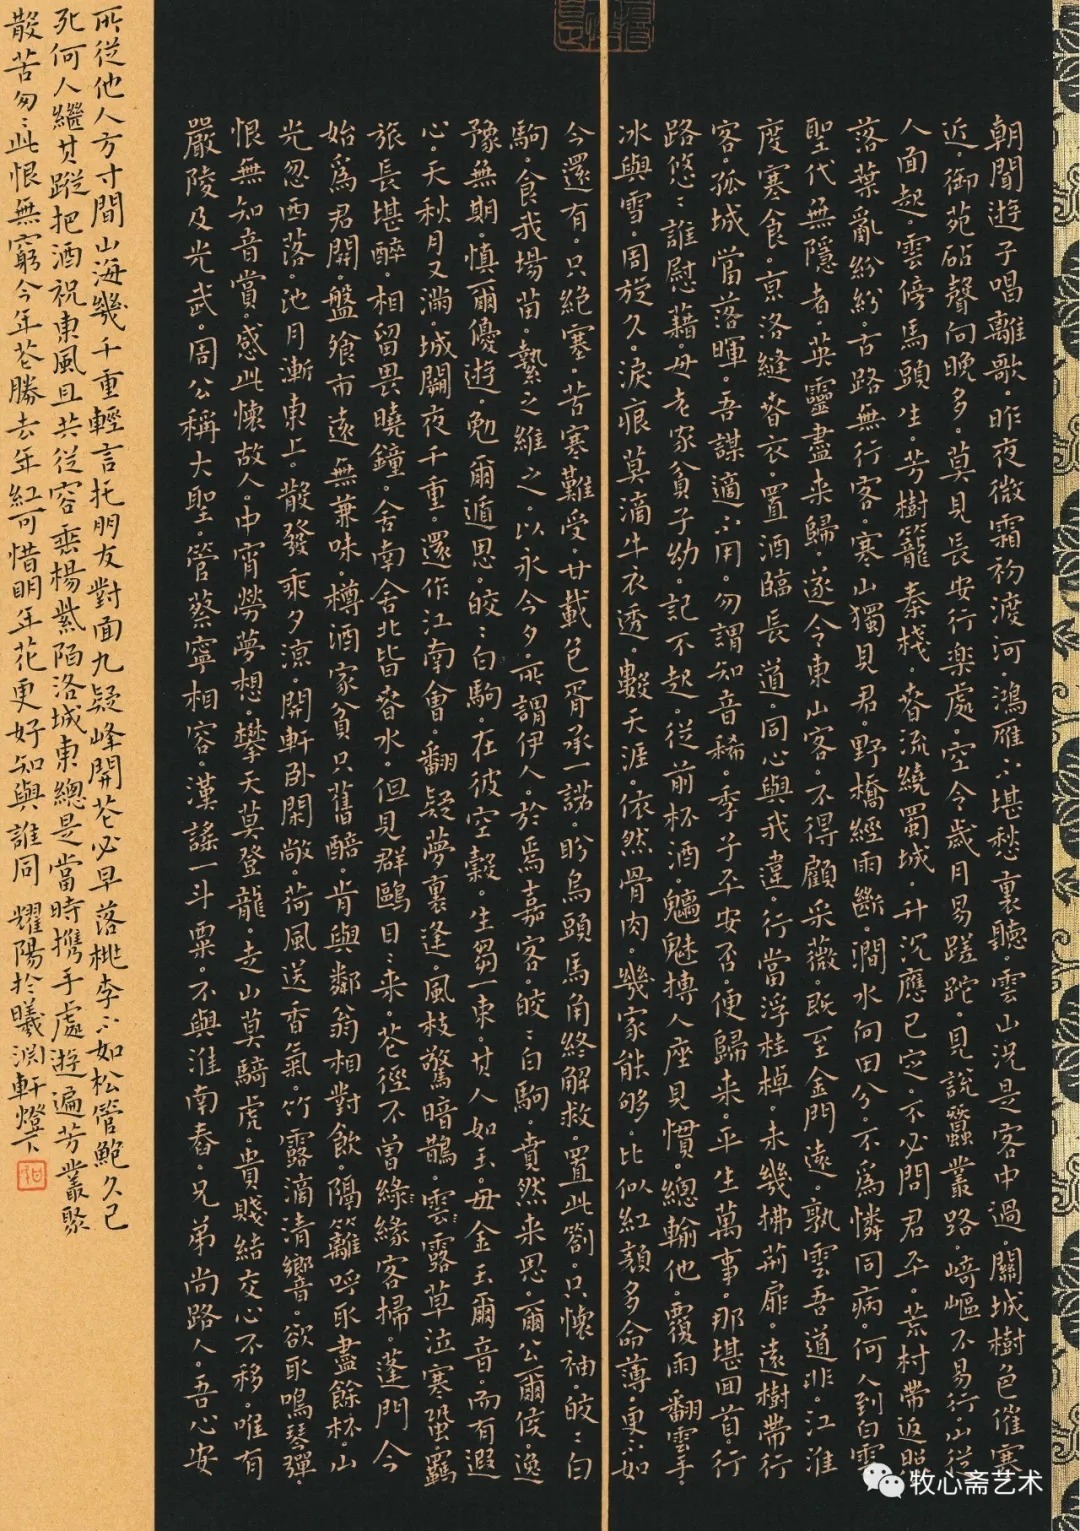 朝聞遊子唱離歌。昨夜微霜初渡河。鴻雁不堪愁裏聽。雲山況是客中過。關城樹色催寒
近。御苑砧聲向晚多。莫見長安行樂處。空令歲月易蹉跎。見說蠶叢路。崎嶇不易行。山從
人面起。雲傍馬頭生。芳樹籠秦棧。春流繞蜀城。升沉應已定。不必問君平。荒村帶返照
落葉亂紛紛。古路無行客。寒山獨見君。野橋經雨斷。澗水向田分。不爲憐同病。何人到白雲
聖代無隱者。英靈盡來歸。遂令東山客。不得顧采薇。既至金門遠。孰雲吾道非。江淮
度寒食。京洛縫春衣。置酒臨長道。同心與我違。行當浮桂棹。未幾拂荊扉。遠樹帶行
客。孤城當落暉。吾謀適不用。勿謂知音稀。季子平安否。便歸來。平生萬事。那堪回首。行
路悠悠誰慰藉。母老家貧子幼。記不起。從前杯酒。魑魅搏人座見慣。總輸他。覆雨翻雲手。
冰與雪。周旋久。淚痕莫滴牛衣透。數天涯。依然骨肉。幾家能够。比似紅顏多命薄。更不如
今還有。只絕塞。苦寒難受。廿載包胥承一諾。盼烏頭馬角終解救。置此劄。只懷袖。皎皎白
駒。食我場苗。縶之維之。以永今夕。所謂伊人。於焉嘉客。皎皎白駒。賁然来思。爾公爾侯。逸
豫無期。慎爾優遊。勉爾遁思。皎皎白駒。在彼空穀。生芻一束。其人如玉。毋金玉爾音。而有遐
心。天秋月又滿。城闕夜千重。還作江南會。翻疑夢裏逢。風枝驚暗鵲。雲露草泣寒蛩。羈
旅長堪醉。相留畏曉鐘。舍南舍北皆春水。但見群鷗日日來。花徑不曾綠緣客掃。蓬門今
始爲君開。盤飧市遠無兼味。樽酒家貧只舊醅。肯與鄰翁相對飲。隔籬呼取盡餘杯。山
光忽西落。池月漸東上。散發乘夕涼。開軒臥閑敞。荷風送香氣。竹露滴清響。欲取鳴琴彈
恨無知音賞。感此懷故人。中宵勞夢想。攀天莫登龍。走山莫騎虎。貴賤結交心不移。唯有
嚴陵及光武。周公稱大聖。管蔡寧相容。漢謠一斗粟。不與淮南舂。兄弟尚路人。吾心安
所從他人方寸間山海幾千重輕言托朋友對面九疑峰開花必早落桃李不如松管鮑久已
死何人繼其蹤把酒祝東風且共從容垂楊紫陌洛城東總是當時携手處遊遍芳叢聚
散苦匆匆此恨無窮今年花勝去年紅可惜明年花更好知與誰同 耀陽於曦淵軒燈下
牧心斋艺术